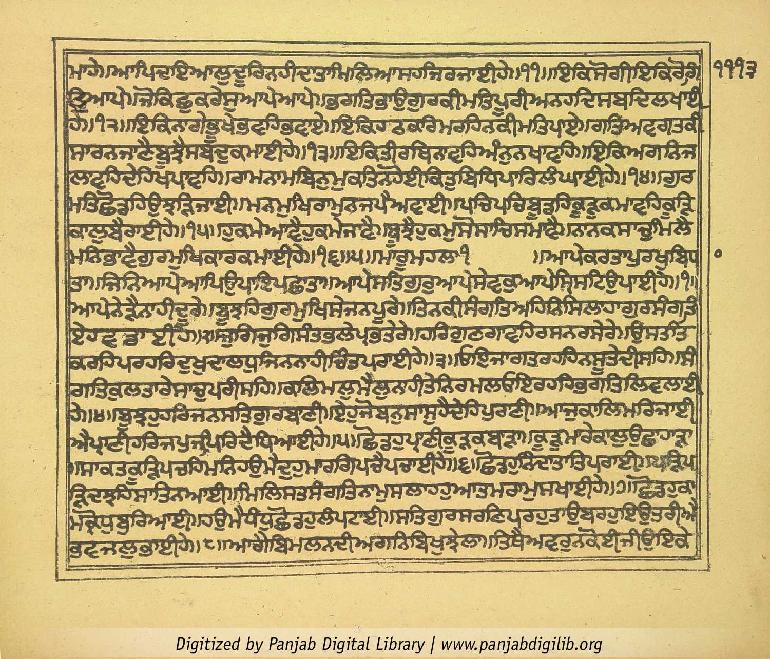 ੧੧੧੩
ਮਾਹੇ॥ਆਪਿਦਇਆਲੁਦੂਰਿਨਹੀਦਾਤਾਮਿਲਿਆਸਹਜਿਰਜਾਈਹੇ॥੧੧॥ਇਕਿਸੋਗੀਇਕਿਰੋਗਿ
ਵਿਆਪੇ॥ਜੋਕਿਛੁਕਰੇਸੁਆਪੇਆਪੇ॥ਭਗਤਿਭਾਉਗੁਰਕੀਮਤਿਪੂਰੀਅਨਹਦਿਸਬਦਿਲਖਾਈ
ਹੇ॥੧੨॥ਇਕਿਨਾਗੇਭੂਖੇਭਵਹਿਭਵਾਏ॥ਇਕਿਹਠੁਕਰਿਮਰਹਿਨਕੀਮਤਿਪਾਏ॥ਗਤਿਅਵਿਗਤਕੀ
ਸਾਰਨਜਾਣੈਬੂਝੈਸਬਦੁਕਮਾਈਹੇ॥੧੩॥ਇਕਿਤੀਰਥਿਨਾਵਹਿਅੰਨੁਨਖਾਵਹਿ॥ਇਕਿਅਗਨਿਜ
ਲਾਵਹਿਦੇਹਖਪਾਵਹਿ॥ਰਾਮਨਾਮਬਿਨੁਮੁਕਤਿਨਹੋਈਕਿਤੁਬਿਧਿਪਾਰਿਲੰਘਾਈਹੇ॥੧੪॥ਗੁਰ
ਮਤਿਛੋਡਹਿਉਝੜਿਜਾਈ॥ਮਨਮੁਖਿਰਾਮੁਨਜਪੈਅਵਾਈ॥ਪਚਿਪਚਿਬੂਡਹਿਕੂੜੁਕਮਾਵਹਿਕੂੜਿ
ਕਾਲੁਬੈਰਾਈਹੇ॥੧੫॥ਹੁਕਮੇਆਵੈਹੁਕਮੇਜਾਵੈ॥ਬੂਝੈਹੁਕਮੁਸੋਸਾਚਿਸਮਾਵੈ॥ਨਾਨਕਸਾਚੁਮਿਲੈ
ਮਨਿਭਾਵੈਗੁਰਮੁਖਿਕਾਰਕਮਾਈਹੇ॥੧੬॥੫॥ਮਾਰੂਮਹਲਾ੧ ॥ਆਪੇਕਰਤਾਪੁਰਖੁਬਿਧਾ
ਤਾ॥ਜਿਨਿਆਪੇਆਪਿਉਪਾਇਪਛਾਤਾ॥ਆਪੇਸਤਿਗੁਰੁਆਪੇਸੇਵਕੁਆਪੇਸ੍ਰਿਸਟਿਉਪਾਈਹੇ॥੧॥
ਆਪੇਨੇੜੈਨਾਹੀਦੂਰੇ॥ਬੂਝਹਿਗੁਰਮੁਖਿਸੇਜਨਪੂਰੇ॥ਤਿਨਕੀਸੰਗਤਿਅਹਿਨਿਸਿਲਾਹਾਗੁਰਸੰਗਤਿ
ਏਹਵਡਾਈਹੇ॥੨॥ਜੁਗਿਜੁਗਿਸੰਤਭਲੇਪ੍ਰਭਤੇਰੇ॥ਹਰਿਗੁਣਗਾਵਹਿਰਸਨਰਸੇਰੇ॥ਉਸਤਤਿ
ਕਰਹਿਪਰਹਰਿਦੁਖੁਦਾਲਦੁਜਿਨਨਾਹੀਚਿੰਤਪਰਾਈਹੇ॥੩॥ਓਇਜਾਗਤਰਹਹਿਨਸੂਤੇਦੀਸਹਿ॥ਸੰ
ਗਤਿਕੁਲਤਾਰੇਸਾਚੁਪਰੀਸਹਿ॥ਕਲਿਮਲਮੈਲੁਨਾਹੀਤੇਨਿਰਮਲਓਇਰਹਹਿਭਗਤਿਲਿਵਲਾਈ
ਹੇ॥੪॥ਬੂਝਹੁਹਰਿਜਨਸਤਿਗੁਰਬਾਣੀ॥ਏਹੁਜੋਬਨੁਸਾਸੁਹੈਦੇਹਪੁਰਾਣੀ॥ਆਜੁਕਾਲਿਮਰਿਜਾਈ
ਐਪ੍ਰਾਣੀਹਰਿਜਪੁਜਪਿਰਿਦੈਧਿਆਈਹੇ॥੫॥ਛੋਡਹੁਪ੍ਰਾਣੀਕੂੜਕਬਾੜਾ॥ਕੂੜੁਮਾਰੇਕਾਲੁਉਛਾਹਾੜਾ
॥ਸਾਕਤਕੂੜਿਪਚਹਿਮਨਿਹਉਮੈਦੁਹੁਮਾਰਗਿਪਚੈਪਚਾਈਹੇ॥੬॥ਛੋਡਿਹੁਨਿੰਦਾਤਾਤਿਪਰਾਈ॥ਪੜਿਪ
ੜਿਦਝਹਿਸਾਤਿਨਆਈ॥ਮਿਲਿਸਤਸੰਗਤਿਨਾਮੁਸਲਾਹਹੁਆਤਮਰਾਮੁਸਖਾਈਹੇ॥੭॥ਛੋਡਹੁਕਾ
ਮਕ੍ਰੋਧੁਬੁਰਿਆਈ॥ਹਉਮੈਧੰਧੁਛੋਡਹੁਲੰਪਟਾਈ॥ਸਤਿਗੁਰਸਰਣਿਪਰਹੁਤਾਉਬਰਹੁਇਉਤਰੀਐ
ਭਵਜਲੁਭਾਈਹੇ॥੮॥ਆਗੈਬਿਮਲਨਦੀਅਗਨਿਬਿਖੁਝੇਲਾ॥ਤਿਥੈਅਵਰੁਨਕੋਈਜੀਉਇਕੇ
Digitized by Panjab Digital Library | www.panjabdigilib.org